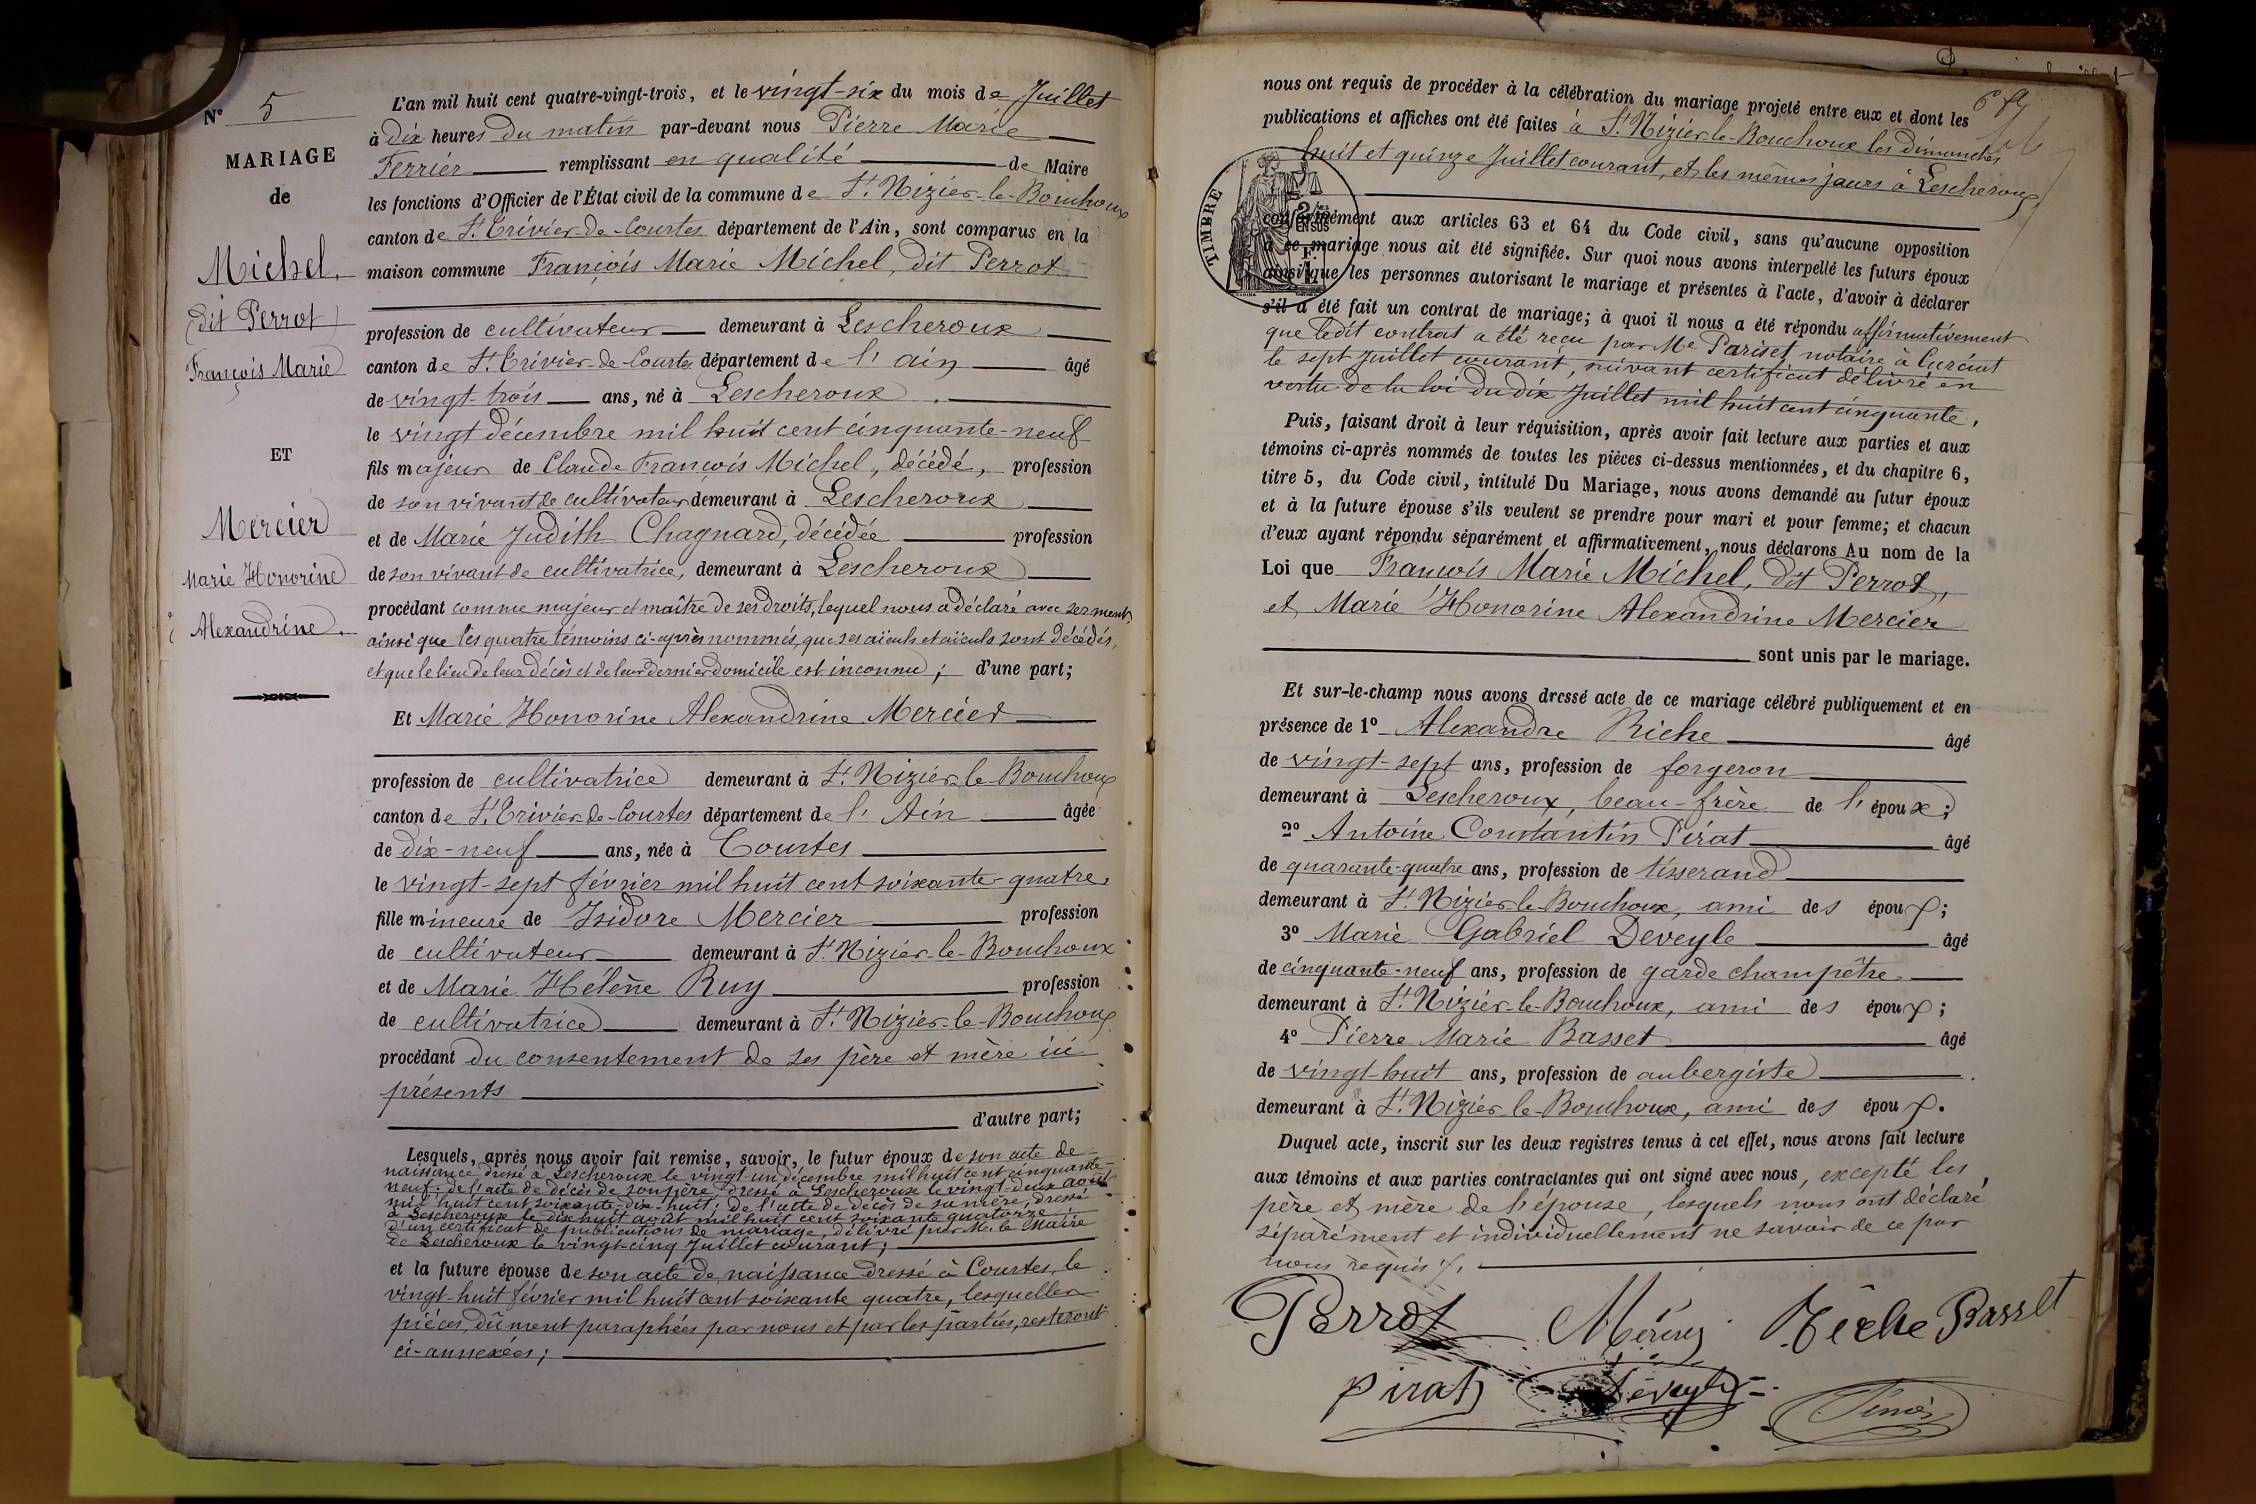 N° 5
MARIAGE
de
Michel,
(dit Perrot)
François Marie
ET
Mercier
Marie Honorine
Alexandrine.
L'an mil huit cent quatre-vingt-trois, et le vingt-six du mois de Juillet
à dix heures du matin par-devant nous Pierre Marie
Ferrier remplissant en qualité de Maire
les fonctions d'Officier de l'État civil de la commune de St Nizier-le-Bouchoux
canton de St Trivier-de-Courtes département de l'Ain, sont comparus en la
maison commune François Marie Michel, dit Perrot
profession de cultivateur demeurant à Lescheroux
canton de St Trivier-de-Courtes département de l'ain âgé
de vingt-trois ans, né à Lescheroux
le vingt décembre mil huit cent cinquante-neuf
fils majeur de Claude François Michel, décédé, profession
de son vivant de cultivateur demeurant à Lescheroux
et de Marie Judith Chagnard, décédée profession
de son vivant de cultivatrice, demeurant à Lescheroux
procédant comme majeur et maître de ses droits, lequel nous a déclaré avec serment,
ainsi que les quatre témoins ci-après nommés, que ses aïeuls et aïeules sont décédés,
et que le lieu de leur décès et de leur dernier domicile est inconnu; d'une part;
Et Marie Honorine Alexandrine Mercier
profession de cultivatrice demeurant à St Nizier-le-Bouchoux
canton de St Trivier-de-Courtes département de l'Ain âgée
de dix-neuf ans, née à Courtes
le vingt-sept février mil huit cent soixante-quatre,
fille mineure de Isidore Mercier profession
de cultivateur demeurant à St Nizier-le-Bouchoux
et de Marie Hélène Ruy profession
de cultivatrice demeurant à St Nizier-le-Bouchoux
procédant du consentement de ses père et mère ici
présents
d'autre part;
Lesquels, après nous avoir fait remise, savoir, le futur époux de son acte de
naissance dressé à Lescheroux le vingt-un décembre mil huit cent cinquante-
neuf; de l'acte de décès de son père, dressé à Lescheroux le vingt-deux août
mil huit cent soixante-dix-huit; de l'acte de décès de sa mère, dressé
à Lescheroux le dix huit août mil huit cent soixante quatorze;
d'un certificat de publications de mariage, délivré par M. le Maire
de Lescheroux le vingt-cinq Juillet courant;
et la future épouse de son acte de naissance dressé à Courtes, le
vingt-huit février mil huit cent soixante quatre, lesquelles
pièces, dûment paraphées par nous et par les parties, resteront
ci-annexées;
nous ont requis de procéder à la célébration du mariage projeté entre eux et dont les
publications et affiches ont été faites à St Nizier-le-Bouchoux les dimanches
huit et quinze Juillet courant, et les mêmes jours à Lescheroux,
TIMBRE
2/10 EN SUS
F.
1
conformément aux articles 63 et 64 du Code civil, sans qu'aucune opposition
à ce mariage nous ait été signifiée. Sur quoi nous avons interpellé les futurs époux
ainsi que les personnes autorisant le mariage et présentes à l'acte, d'avoir à déclarer
s'il a été fait un contrat de mariage; à quoi il nous a été répondu affirmativement
que ledit contrat a été reçu par Me Pariset notaire à Curciat
le sept Juillet courant, suivant certificat délivré en
vertu de la loi du dix Juillet mil huit cent cinquante,
Puis, faisant droit à leur réquisition, après avoir fait lecture aux parties et aux
témoins ci-après nommés de toutes les pièces ci-dessus mentionnées, et du chapitre 6,
titre 5, du Code civil, intitulé Du Mariage, nous avons demandé au futur époux
et à la future épouse s'ils veulent se prendre pour mari et pour femme; et chacun
d'eux ayant répondu séparément et affirmativement, nous déclarons Au nom de la
Loi que François Marie Michel, dit Perrot,
et Marie Honorine Alexandrine Mercier
sont unis par le mariage.
Et sur-le-champ nous avons dressé acte de ce mariage célébré publiquement et en
présence de 1° Alexandre Riche âgé
de vingt-sept ans, profession de forgeron
demeurant à Lescheroux, beau-frère de l'époux;
2° Antoine Constantin Pirat âgé
de quarante-quatre ans, profession de tisserand
demeurant à St Nizier-le-Bouchoux, ami des époux;
3° Marie Gabriel Deveyle âgé
de cinquante-neuf ans, profession de garde champêtre
demeurant à St Nizier-le-Bouchoux, ami des époux;
4° Pierre Marie Basset âgé
de vingt-huit ans, profession de aubergiste
demeurant à St Nizier-le-Bouchoux, ami des époux.
Duquel acte, inscrit sur les deux registres tenus à cet effet, nous avons fait lecture
aux témoins et aux parties contractantes qui ont signé avec nous, excepté les
père et mère de l'épouse, lesquels nous ont déclaré
séparément et individuellement ne savoir de ce par
nous requis
Perrot Riche Basset
Pirat Deveyle